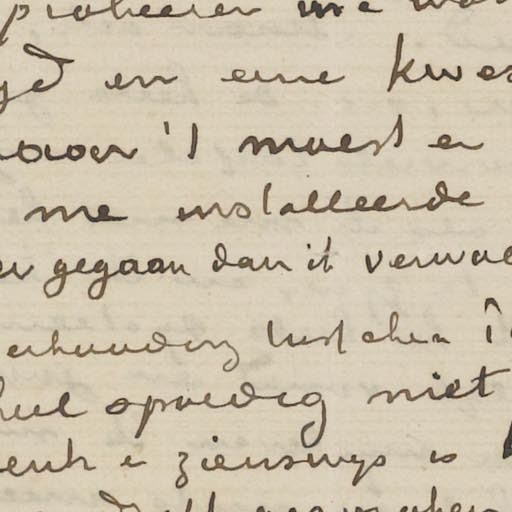 probeeren me
yd en eene kwes
maar 't moest er
me installeerde
er gegaan dan ik verwac
erhouding tusschen
heel spoedig niet
denk e zienswijs is